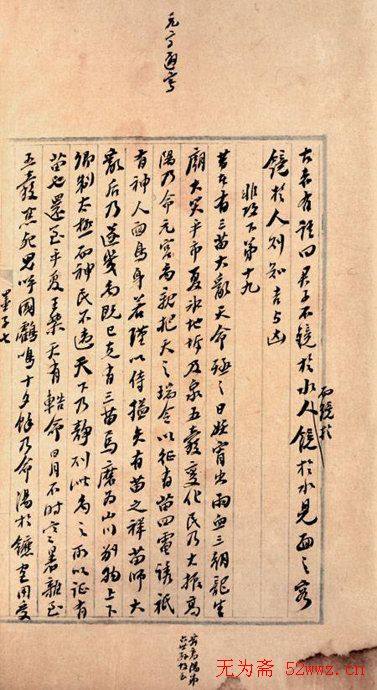 古者有語曰君子不鏡於水人鏡於水見面之容
而鏡於
鏡於人则知吉与凶
非攻下第十九
昔者有三苗大亂天命殛之日妖宵出雨血三朝龍生
廟犬哭乎市夏冰地坼及泉五穀變化民乃大振高
陽乃命元宮禹親把天之瑞令以征有苗四電誘祇
有神人面鳥身若瑾以侍搤矢有苗之祥苗師大
亂后乃遂幾禹既已克有三苗焉磨為山川别物上下
卿制太極而神民不违天下乃静则此禹之所以征有
苗也還至乎夏王桀天有命日月不时寒暑雜至
五穀焦死鬼呼國鶴鳴十夕餘乃命湯於鑣宮用受
墨子七
无为斋 52wwz.cn